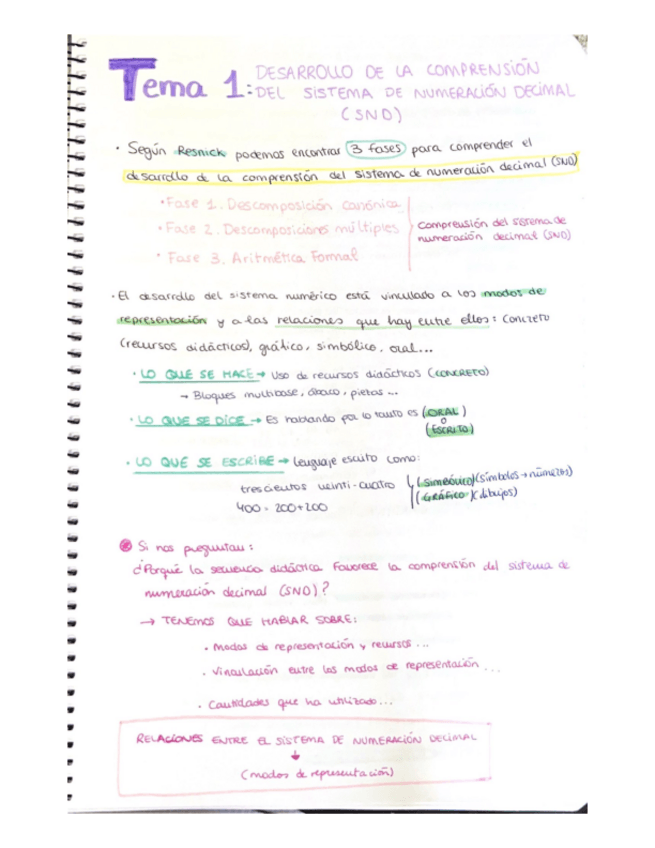 Tema 1: DESARROLLO DE LA COMPRENSIÓN
DEL SISTEMA DE NUMERACIÓN DECIMAL
(SND)
· Según Resnick podemos encontrar 3 fases para comprender el
desarrollo de la comprensión del sistema de numeración decimal (SND)
· Fase 1. Descomposición canónica
· Fase 2. Descomposiciones múltiples
· Fase 3. Aritmética Formal
Comprensión del sistema de
numeración decimal (SND)
· El desarrollo del sistema numérico está vinculado a los modos de
representación y a las relaciones que hay entre ellos: Concreto
(recursos didácticos), gráfico, simbólico, oral...
· LO QUE SE HACE → Uso de recursos didácticos (CONCRETO)
→ Bloques multibase, ábaco, pietas...
· LO QUE SE DICE → Es hablando por lo tanto es (ORAL)
o
(ESCRITO)
· LO QUE SE ESCRIBE → Lenguaje escrito como:
trescientos veinti-cuatro
400 = 200+200
(SIMBÓLICO) (símbolos → números)
(GRÁFICO) (dibujos)
Si nos preguntan:
¿Porqué la secuencia didáctica favorece la comprensión del sistema de
numeración decimal (SND)?
→ TENEMOS QUE HABLAR SOBRE:
· Modos de representación y recursos...
· Vinculación entre los modos de representación...
· Cantidades que ha utilizado...
RELACIONES ENTRE EL SISTEMA DE NUMERACIÓN DECIMAL
↓
(modos de representación)